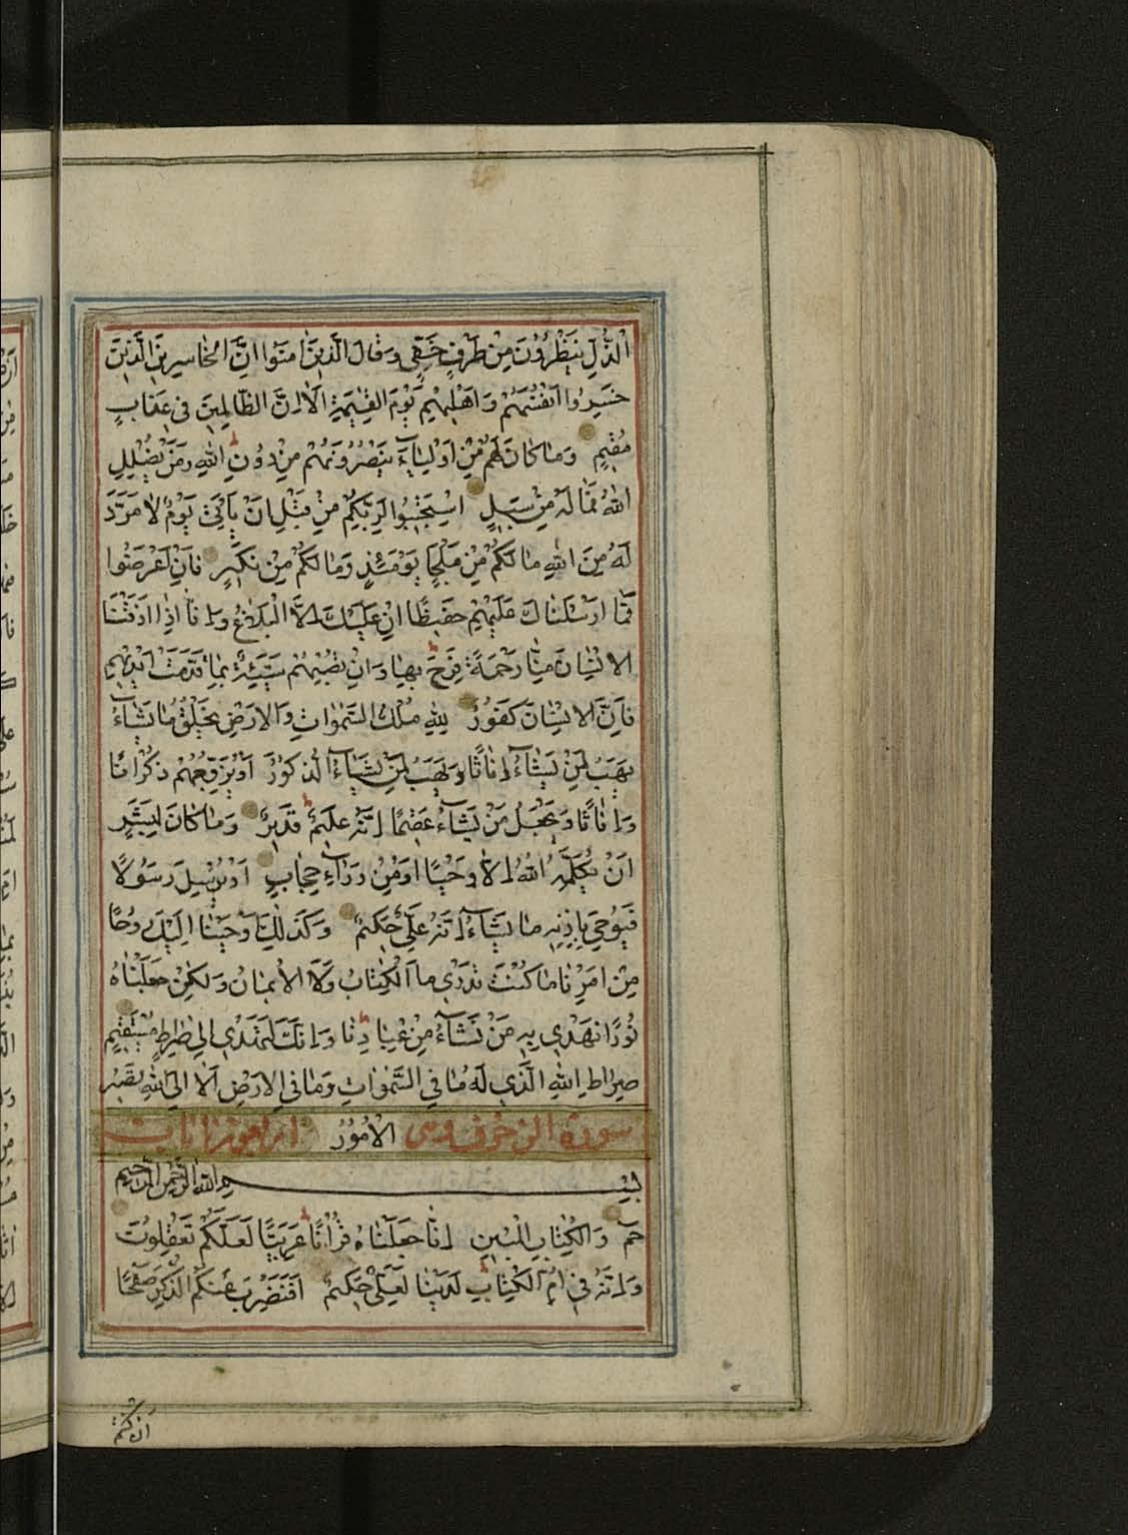 الذُّلِّ يَنْظُرُونَ مِنْ طَرْفٍ خَفِيٍّ وَقَالَ الَّذِينَ امَنُوا اِنَّ الْخَاسِرِينَ الَّذِينَ
خَسِرُوا اَنْفُسَهُمْ وَاَهْلِيهِمْ يَوْمَ الْقِيٰمَةِ اَلَا اِنَّ الظَّالِمِينَ فِي عَذَابٍ
مُقِيمٍ وَمَا كَانَ لَهُمْ مِنْ اَوْلِيَاءَ يَنْصُرُونَهُمْ مِنْ دُونِ اللهِ وَمَنْ يُضْلِلِ
اللهُ فَمَا لَهُ مِنْ سَبِيلٍ اسْتَجِيبُوا لِرَبِّكُمْ مِنْ قَبْلِ اَنْ يَأْتِيَ يَوْمٌ لَا مَرَدَّ
لَهُ مِنَ اللهِ مَا لَكُمْ مِنْ مَلْجَاٍ يَوْمَئِذٍ وَمَا لَكُمْ مِنْ نَكِيرٍ فَاِنْ اَعْرَضُوا
فَمَا اَرْسَلْنَاكَ عَلَيْهِمْ حَفِيظًا اِنْ عَلَيْكَ اِلَّا الْبَلَاغُ وَاِنَّا اِذَا اَذَقْنَا
الْاِنْسَانَ مِنَّا رَحْمَةً فَرِحَ بِهَا وَاِنْ تُصِبْهُمْ سَيِّئَةٌ بِمَا قَدَّمَتْ اَيْدِيهِمْ
فَاِنَّ الْاِنْسَانَ كَفُورٌ لِلهِ مُلْكُ السَّمٰوَاتِ وَالْاَرْضِ يَخْلُقُ مَا يَشَاءُ
يَهَبُ لِمَنْ يَشَاءُ اِنَاثًا وَيَهَبُ لِمَنْ يَشَاءُ الذُّكُورَ اَوْ يُزَوِّجُهُمْ ذُكْرَانًا
وَاِنَاثًا وَيَجْعَلُ مَنْ يَشَاءُ عَقِيمًا اِنَّهُ عَلِيمٌ قَدِيرٌ وَمَا كَانَ لِبَشَرٍ
اَنْ يُكَلِّمَهُ اللهُ اِلَّا وَحْيًا اَوْ مِنْ وَرَاءِ حِجَابٍ اَوْ يُرْسِلَ رَسُولًا
فَيُوحِيَ بِاِذْنِهِ مَا يَشَاءُ اِنَّهُ عَلِيٌّ حَكِيمٌ وَكَذٰلِكَ اَوْحَيْنَا اِلَيْكَ رُوحًا
مِنْ اَمْرِنَا مَا كُنْتَ تَدْرِي مَا الْكِتَابُ وَلَا الْاِيمَانُ وَلٰكِنْ جَعَلْنَاهُ
نُورًا نَهْدِي بِهِ مَنْ نَشَاءُ مِنْ عِبَادِنَا وَاِنَّكَ لَتَهْدِي اِلٰى صِرَاطٍ مُسْتَقِيمٍ
صِرَاطِ اللهِ الَّذِي لَهُ مَا فِي السَّمٰوَاتِ وَمَا فِي الْاَرْضِ اَلَا اِلَى اللهِ تَصِيرُ
سورة الزخرف الْاُمُورُ
بِسْمِ اللهِ الرَّحْمٰنِ الرَّحِيمِ
حم وَالْكِتَابِ الْمُبِينِ اِنَّا جَعَلْنَاهُ قُرْاٰنًا عَرَبِيًّا لَعَلَّكُمْ تَعْقِلُونَ
وَاِنَّهُ فِي اُمِّ الْكِتَابِ لَدَيْنَا لَعَلِيٌّ حَكِيمٌ اَفَنَضْرِبُ عَنْكُمُ الذِّكْرَ صَفْحًا
اَنْ كُنْتُمْ